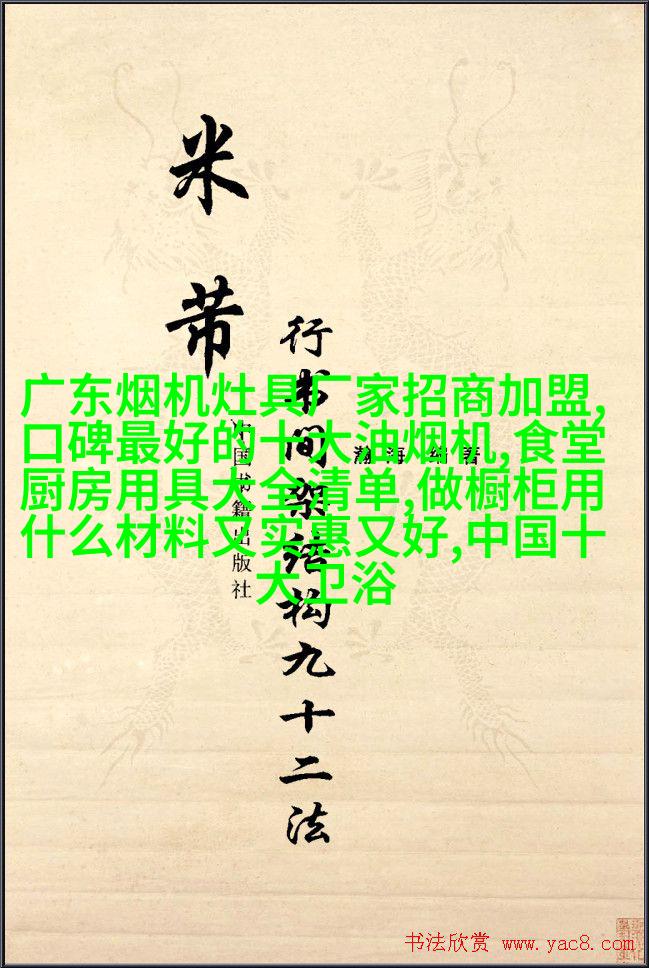 米芾
行书间架结构九十二法
瀚海 编著
中国书籍出版社
广东烟机灶具厂家招商加盟,
口碑最好的十大油烟机,食堂
厨房用具大全清单,做橱柜用
什么材料又实惠又好,中国十
大卫浴
书法欣赏 www.yac8.com